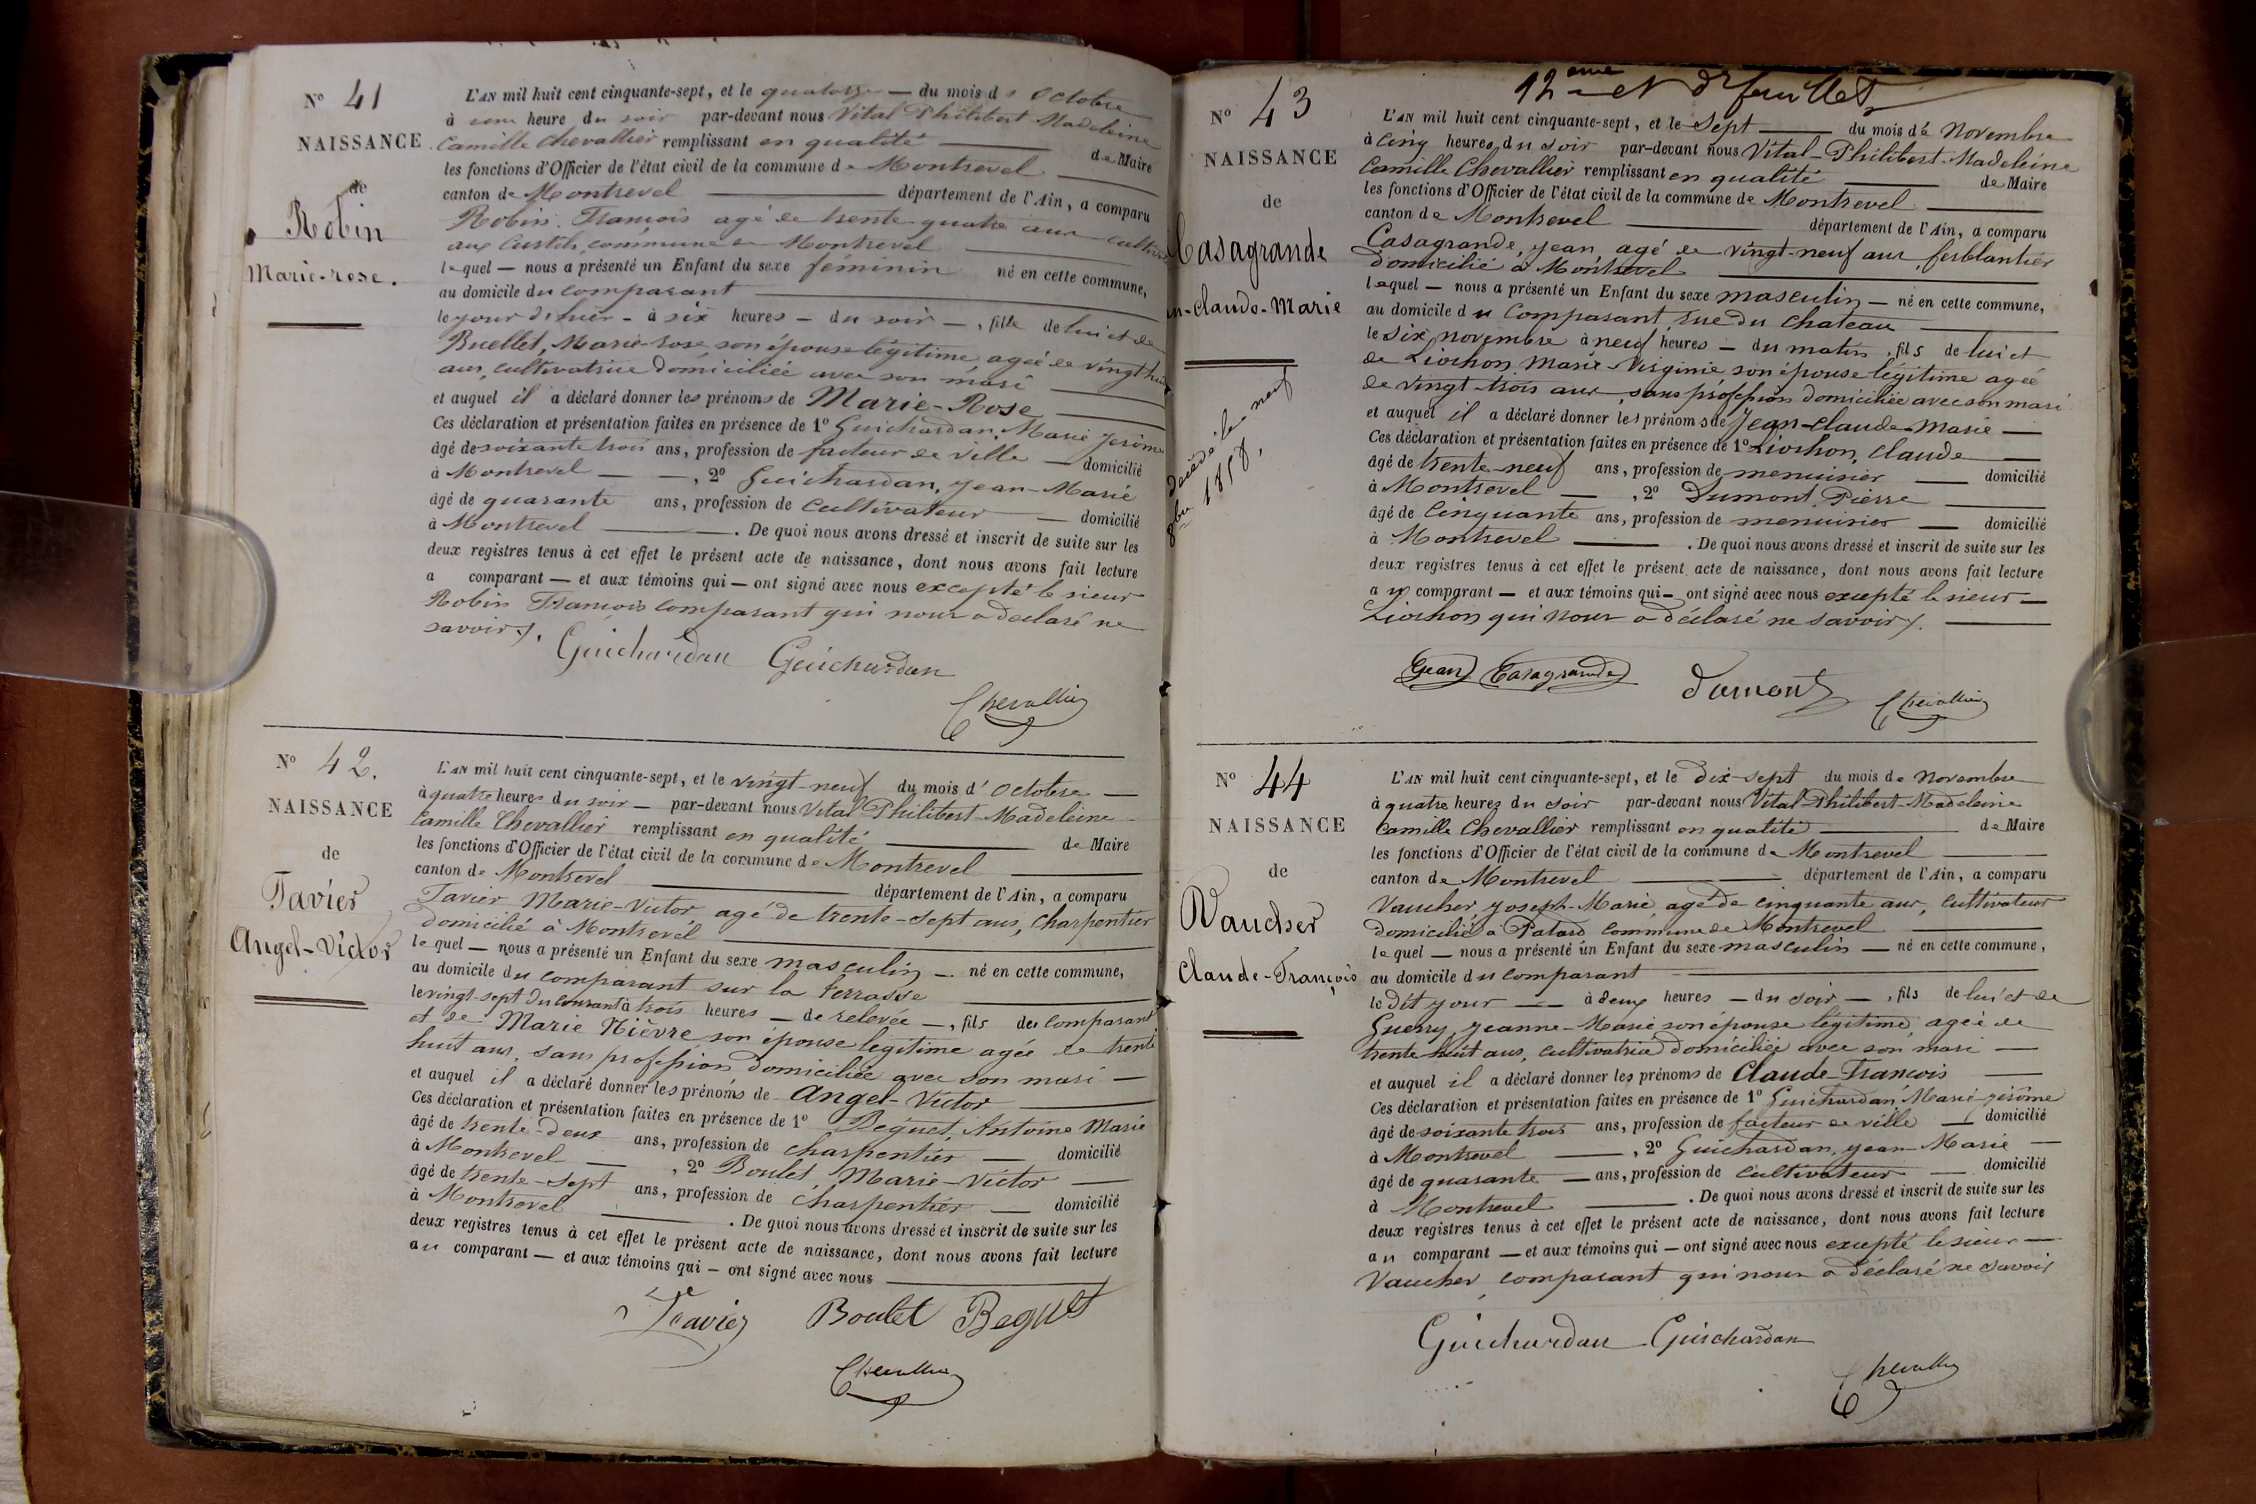 N° 41
NAISSANCE
de
Robin
Marie-rose.
L'AN mil huit cent cinquante-sept, et le quatorze — du mois d' Octobre
à heure du soir par-devant nous Vital Philibert Madeleine
Camille Chevallier remplissant en qualité — de Maire
les fonctions d'Officier de l'état civil de la commune de Montrevel —
canton de Montrevel — département de l'Ain, a comparu
Robin François agé de trente quatre ans
aux Curtils, commune de Montrevel —
lequel — nous a présenté un Enfant du sexe féminin né en cette commune,
au domicile du comparant —
le jour d'hier - à six heures — du soir —, fille de lui et de
Buellet, Marie-rose son épouse légitime agée de vingt huit
ans, cultivatrice domiciliée avec son mari —
et auquel il a déclaré donner les prénoms de Marie-Rose —
Ces déclaration et présentation faites en présence de 1° Guichardan, Marie Jérôme
âgé de soixante trois ans, profession de facteur de ville — domicilié
à Montrevel — —, 2° Guichardan, Jean-Marie
âgé de quarante ans, profession de cultivateur — domicilié
à Montrevel — . De quoi nous avons dressé et inscrit de suite sur les
deux registres tenus à cet effet le présent acte de naissance, dont nous avons fait lecture
a comparant — et aux témoins qui — ont signé avec nous excepté le sieur
Robin François comparant qui nous a déclaré ne
savoir.
Guichardan Guichardan
Chevallier
N° 42.
NAISSANCE
de
Tavier
Angel-Victor
L'AN mil huit cent cinquante-sept, et le vingt-neuf du mois d' Octobre —
à quatre heures du soir — par-devant nous Vital Philibert-Madeleine
Camille Chevallier remplissant en qualité — de Maire
les fonctions d'Officier de l'état civil de la commune de Montrevel —
canton de Montrevel — département de l'Ain, a comparu
Tavier Marie-Victor agé de trente-sept ans, charpentier
domicilié à Montrevel —
lequel — nous a présenté un Enfant du sexe masculin — né en cette commune,
au domicile du comparant sur la terrasse —
le vingt-sept du courant à trois heures — de relevée —, fils du comparant
et de Marie Nièvre son épouse légitime agée de trente
huit ans, sans profession domiciliée avec son mari —
et auquel il a déclaré donner les prénoms de Angel-Victor —
Ces déclaration et présentation faites en présence de 1° Beguet, Antoine Marie
âgé de trente-deux ans, profession de charpentier — domicilié
à Montrevel — , 2° Boulet, Marie-Victor —
âgé de trente-sept ans, profession de charpentier — domicilié
à Montrevel — . De quoi nous avons dressé et inscrit de suite sur les
deux registres tenus à cet effet le présent acte de naissance, dont nous avons fait lecture
au comparant — et aux témoins qui — ont signé avec nous —
Tavier Boulet Beguet
Chevallier
12ème et dr feuillet
N° 43
NAISSANCE
de
Casagrande
n-Claude-Marie
décédé le neuf
8bre 1858.
L'AN mil huit cent cinquante-sept, et le Sept — du mois de Novembre
à cinq heures du soir par-devant nous Vital-Philibert-Madeleine
Camille Chevallier remplissant en qualité — de Maire
les fonctions d'Officier de l'état civil de la commune de Montrevel —
canton de Montrevel — département de l'Ain, a comparu
Casagrande, Jean, agé de vingt-neuf ans, ferblantier
domicilié à Montrevel —
lequel — nous a présenté un Enfant du sexe masculin — né en cette commune,
au domicile du comparant, rue du chateau —
le six novembre à neuf heures — du matin, fils de lui et
de Liochon Marie-Virginie son épouse légitime agée
de vingt-trois ans, sans profession domiciliée avec son mari
et auquel il a déclaré donner les prénoms de Jean-Claude-Marie —
Ces déclaration et présentation faites en présence de 1° Liochon, Claude —
âgé de trente-neuf ans, profession de menuisier — domicilié
à Montrevel — , 2° Dumont, Pierre —
âgé de cinquante ans, profession de menuisier — domicilié
à Montrevel — . De quoi nous avons dressé et inscrit de suite sur les
deux registres tenus à cet effet le présent acte de naissance, dont nous avons fait lecture
au comparant — et aux témoins qui — ont signé avec nous excepté le sieur —
Liochon qui nous a déclaré ne savoir. —
Jean Casagrande Dumont Chevallier
N° 44
NAISSANCE
de
Vaucher
Claude-François
L'AN mil huit cent cinquante-sept, et le Dix-sept du mois de Novembre
à quatre heures du soir par-devant nous Vital-Philibert-Madeleine
Camille Chevallier remplissant en qualité — de Maire
les fonctions d'Officier de l'état civil de la commune de Montrevel —
canton de Montrevel — département de l'Ain, a comparu
Vaucher, Joseph-Marie, agé de cinquante ans, cultivateur
domicilié à Patard commune de Montrevel —
lequel — nous a présenté un Enfant du sexe masculin — né en cette commune,
au domicile du comparant —
le dit jour — à deux heures — du soir —, fils de lui et de
Guerry, Jeanne-Marie son épouse légitime, agée de
trente huit ans, cultivatrice domiciliée avec son mari —
et auquel il a déclaré donner les prénoms de Claude François —
Ces déclaration et présentation faites en présence de 1° Guichardan Marie-Jérôme
âgé de soixante trois ans, profession de facteur de ville — domicilié
à Montrevel — , 2° Guichardan, Jean-Marie —
âgé de quarante — ans, profession de cultivateur — domicilié
à Montrevel — . De quoi nous avons dressé et inscrit de suite sur les
deux registres tenus à cet effet le présent acte de naissance, dont nous avons fait lecture
au comparant — et aux témoins qui — ont signé avec nous excepté le sieur —
Vaucher, comparant qui nous a déclaré ne savoir
Guichardan Guichardan
Chevallier